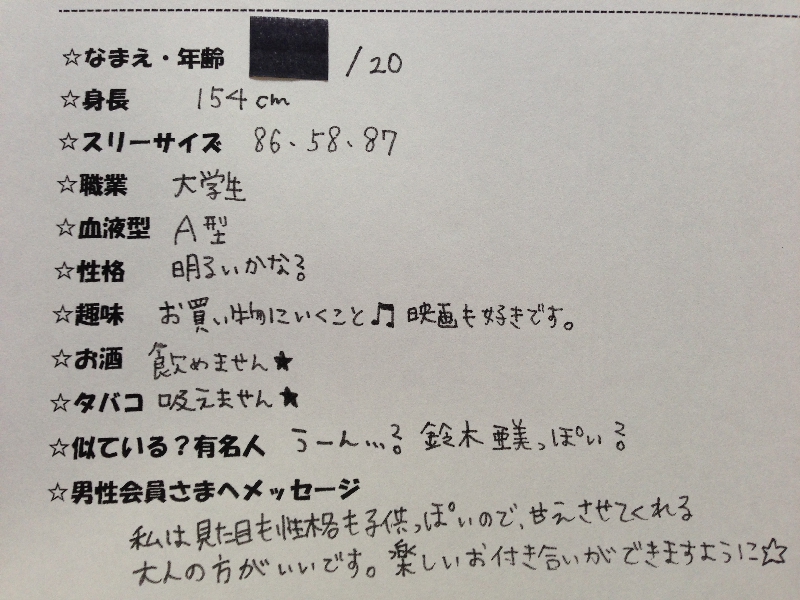 ☆なまえ・年齢 /20
☆身長 154cm
☆スリーサイズ 86、58、87
☆職業 大学生
☆血液型 A型
☆性格 明るいかな?
☆趣味 お買い物にいくこと♫ 映画も好きです。
☆お酒 飲めません★
☆タバコ 吸えません★
☆似ている?有名人 うーん…? 鈴木亜美っぽい?
☆男性会員さまへメッセージ
私は見た目も性格も子供っぽいので、甘えさせてくれる
大人の方がいいです。楽しいお付き合いができますように☆